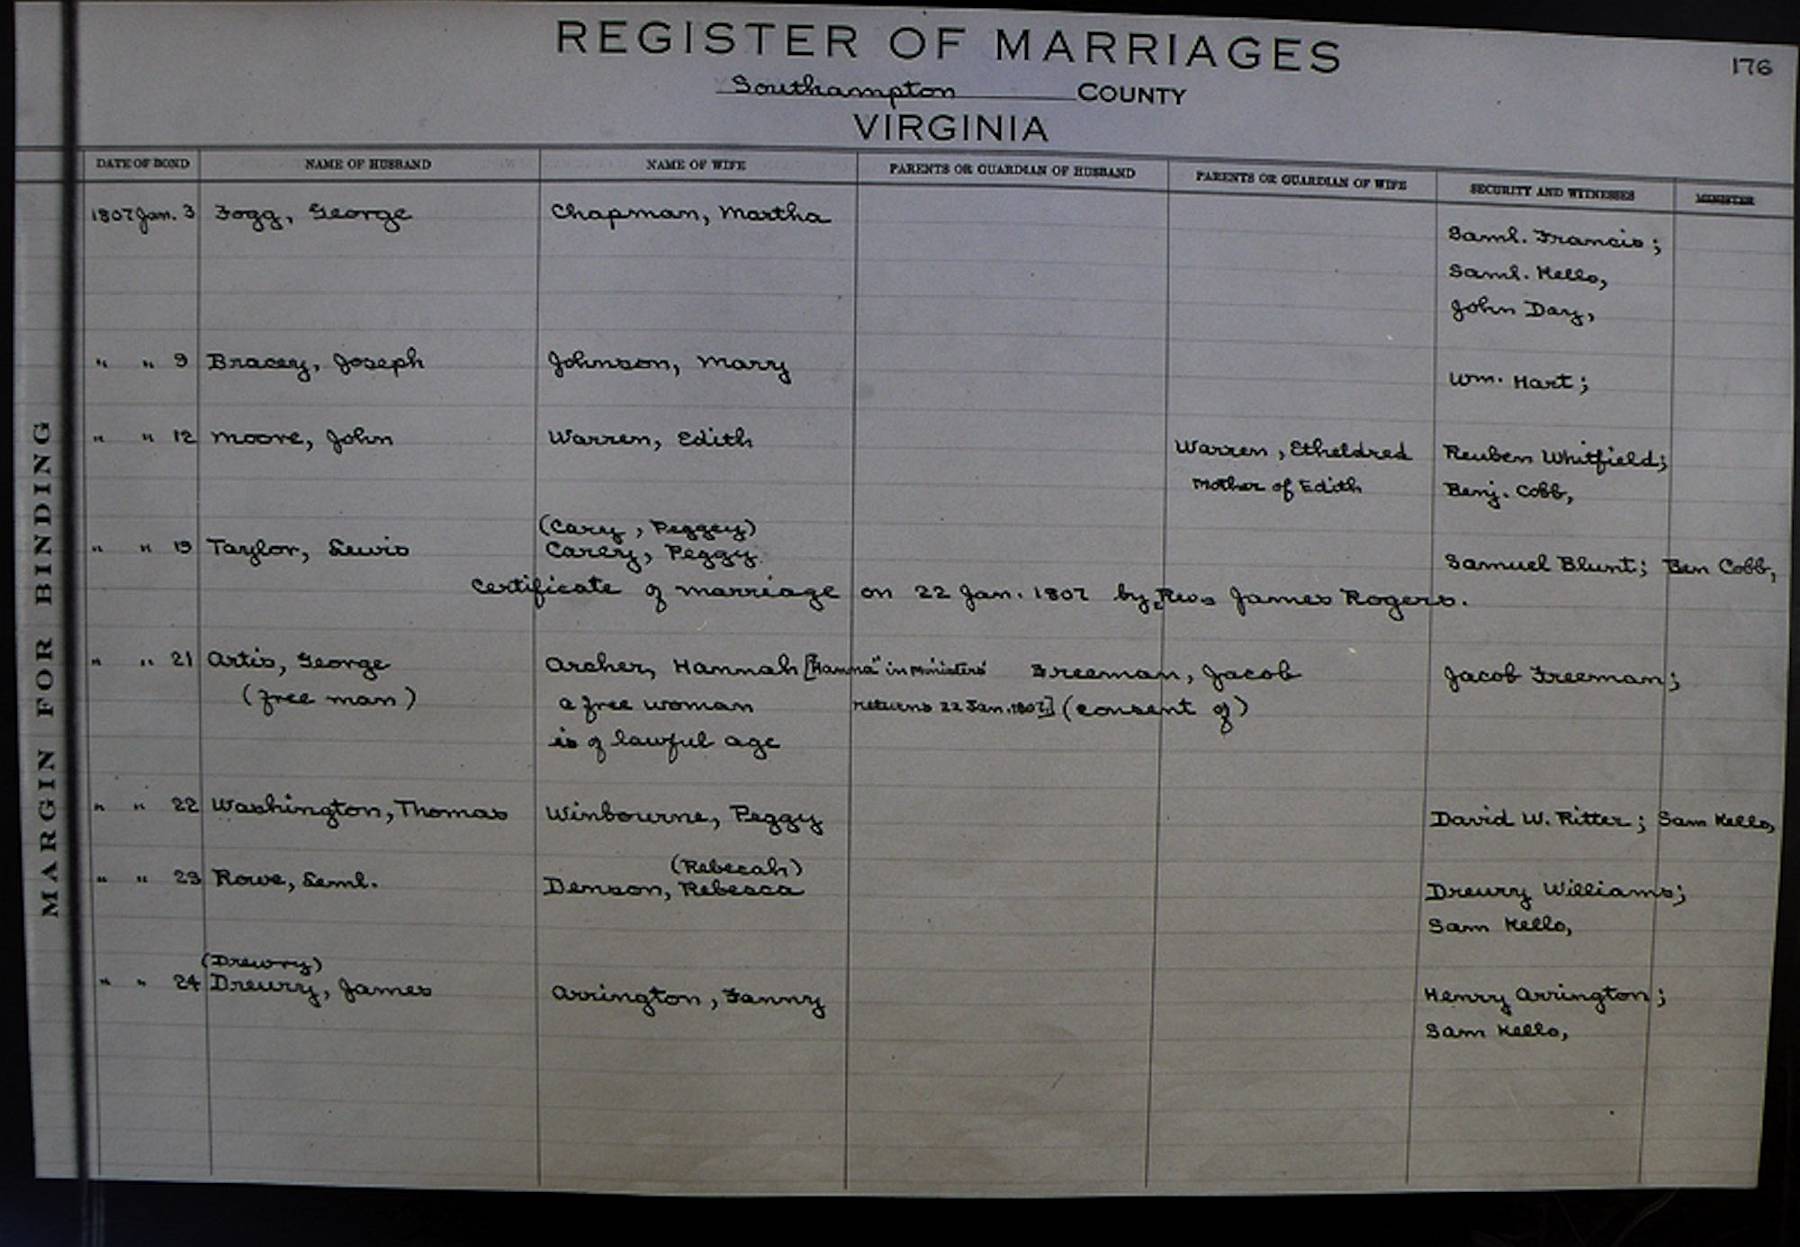 REGISTER OF MARRIAGES
176
Southampton COUNTY
VIRGINIA
MARGIN FOR BINDING
DATE OF BOND NAME OF HUSBAND NAME OF WIFE PARENTS OR GUARDIAN OF HUSBAND PARENTS OR GUARDIAN OF WIFE SECURITY AND WITNESSES MINISTER
1807 Jan. 3 Fogg, George Chapman, Martha
Saml. Francis;
Saml. Kello,
John Day,
" " 9 Bracey, Joseph Johnson, Mary Wm. Hart;
" " 12 Moore, John Warren, Edith Warren, Etheldred Reuben Whitfield;
Mother of Edith Benj. Cobb,
(Cary, Peggey)
" " 19 Taylor, Lewis Carey, Peggy. Samuel Blunt; Ben Cobb,
Certificate of marriage on 22 Jan. 1807 by, Rev. James Rogers.
" " 21 Artis, George Archer, Hannah ["Hanna" in ministers' Freeman, Jacob Jacob Freeman;
(free man) a free woman returns 22 Jan. 1807] (consent of)
is of lawful age
" " 22 Washington, Thomas Winbourne, Peggy David W. Ritter; Sam Kello,
(Rebecah)
" " 23 Rowe, Seml. Denson, Rebecca Drewry Williams;
Sam Kello,
(Drewry)
" " 24 Dreury, James Arrington, Fanny Henry Arrington;
Sam Kello,